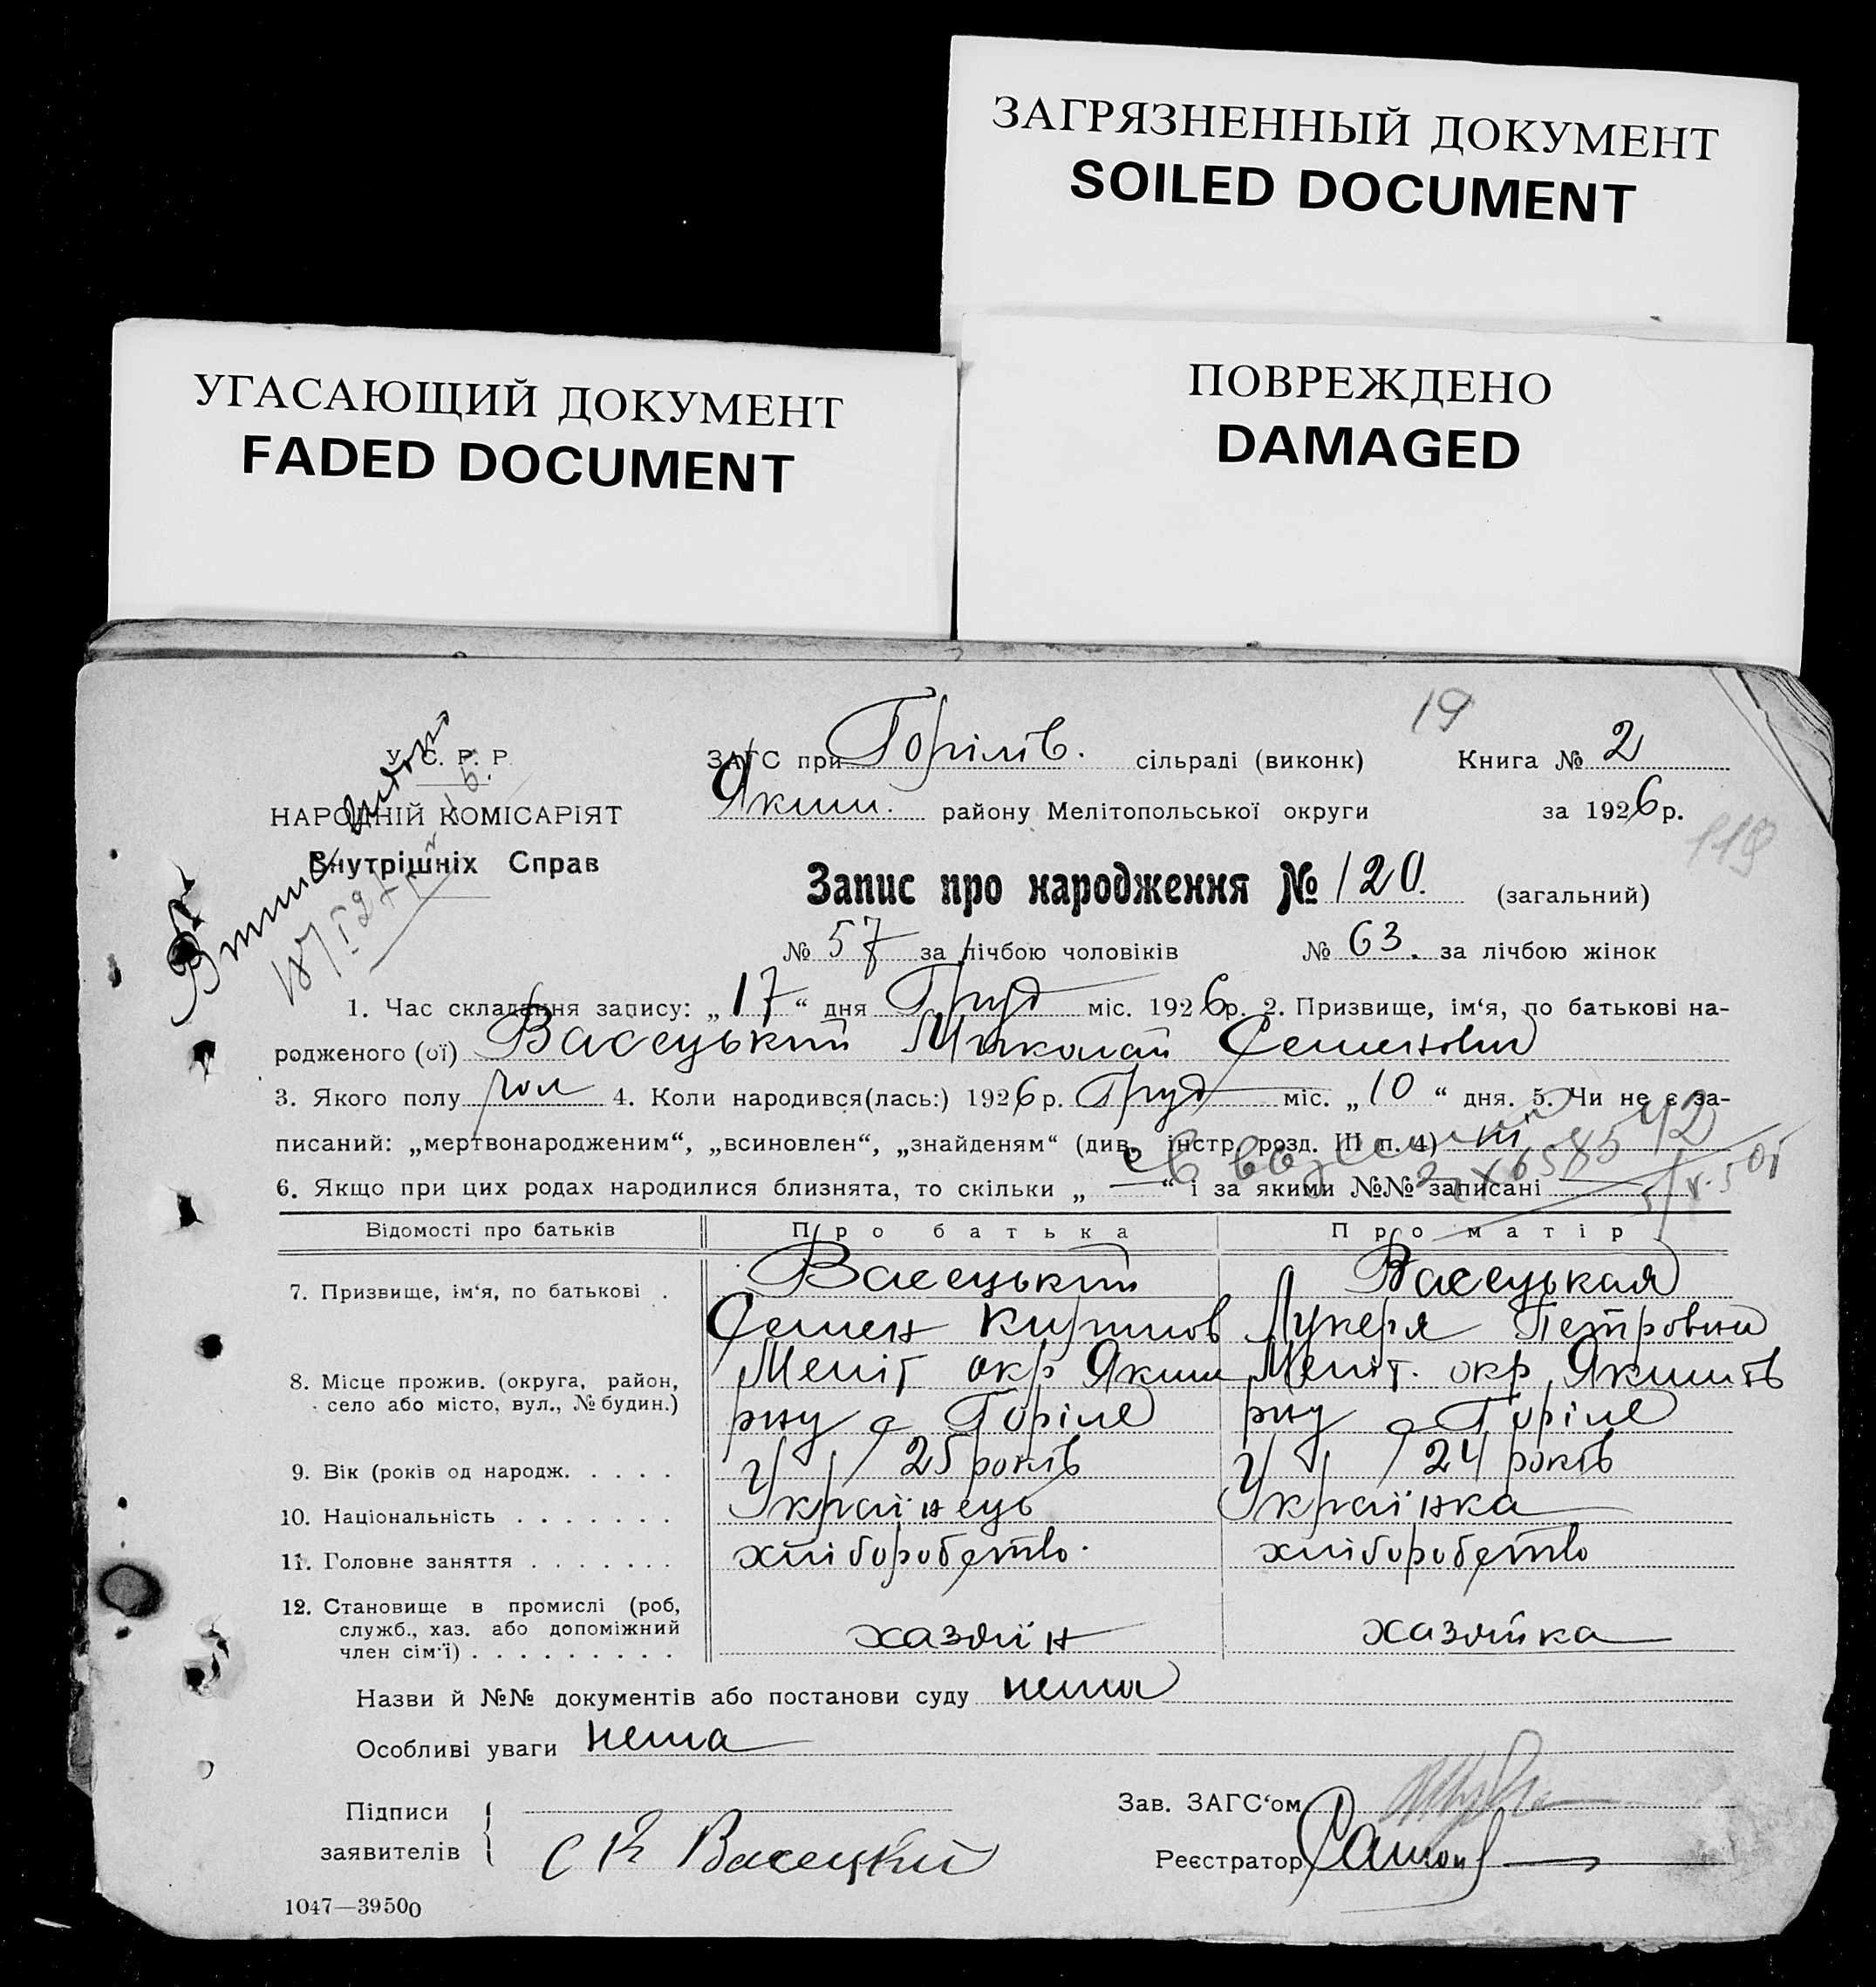 ЗАГРЯЗНЕННЫЙ ДОКУМЕНТ
SOILED DOCUMENT
УГАСАЮЩИЙ ДОКУМЕНТ
FADED DOCUMENT
ПОВРЕЖДЕНО
DAMAGED
19
У. С. Р. Р.
НАРОДНІЙ КОМІСАРІЯТ
Внутрішніх Справ
ЗАГС при Горілів. сільраді (виконк) Книга № 2
Яким. району Мелітопольської округи за 1926 р.
119
Запис про народження № 120. (загальний)
№ 57 за лічбою чоловіків № 63. за лічбою жінок
1. Час складання запису: „17“ дня Груд міс. 1926 р. 2. Призвище, ім‘я, по батькові на-
родженого (ої) Васецький Миколай Семенович
3. Якого полу чол 4. Коли народився(лась:) 1926 р. Груд міс. „10“ дня. 5. Чи не є за-
писаний: „мертвонародженим“, „всиновлен“, „знайденям“ (див. інстр. розд. III п. 4) ні
6. Якщо при цих родах народилися близнята, то скільки „—“ і за якими №№ записані
Відомості про батьків Про батька Про матір
7. Призвище, ім‘я, по батькові . Васецький Васецькая
Семен Кирилов Лукеря Петровна
8. Місце прожив. (округа, район, село або місто, вул., № будин.) Меліт окр Яким Меліт. окр Якимів
рну с Горіле рну с Горіле
9. Вік (років од народж. . . . . 25 років 24 років
10. Національність . . . . . . . Українець Українка
11. Головне заняття . . . . . . . хліборобство. хліборобство
12. Становище в промислі (роб, служб., хаз. або допоміжний член сім‘ї) . . . . . . . . . хазяїн хазяйка
Назви й №№ документів або постанови суду нема
Особливі уваги нема
Підписи заявителів С К Васецкий
Зав. ЗАГС‘ом
Реєстратор
1047—39500